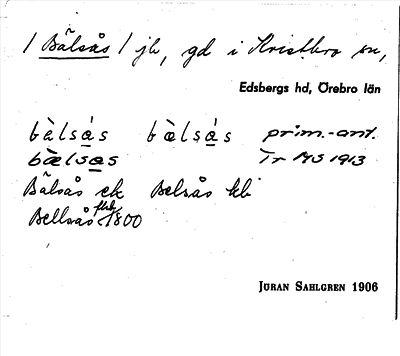 / Bälsås / jb, gd i Kvistbro sn,
Edsbergs hd, Örebro län
bæ̀lsås bæ̀lsås prim.-ant.
bæ̀lsås Tr MS 1913
Bälsås ek Belsås kb
Bellsås flk 1800
JÖRAN SAHLGREN 1906